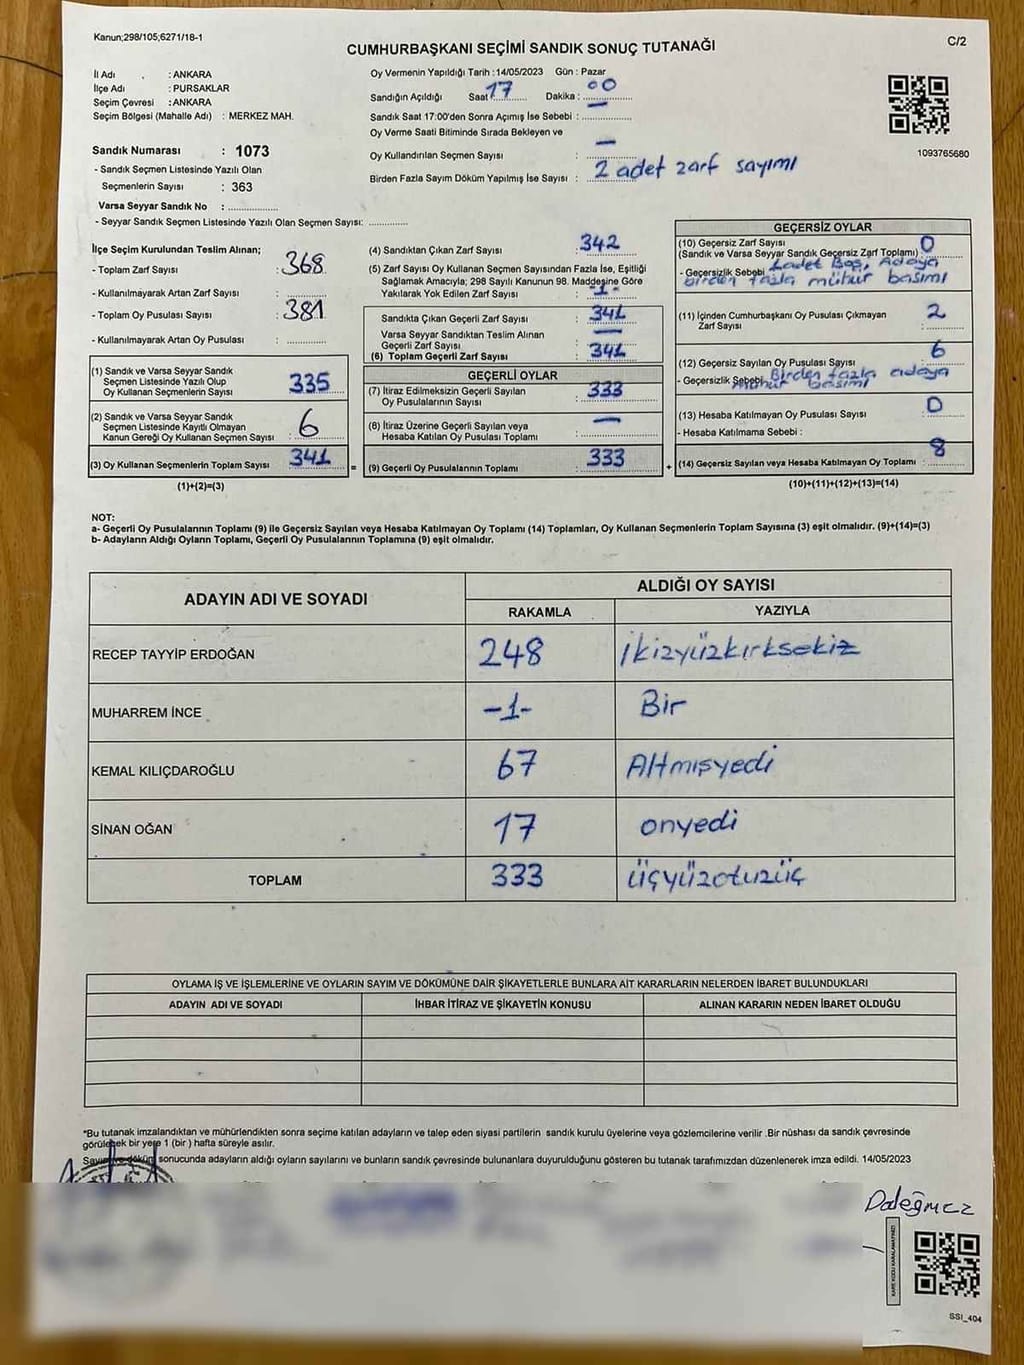 Kanun;298/105;6271/18-1
C/2
CUMHURBAŞKANI SEÇİMİ SANDIK SONUÇ TUTANAĞI
İl Adı : ANKARA
İlçe Adı : PURSAKLAR
Seçim Çevresi : ANKARA
Seçim Bölgesi (Mahalle Adı) : MERKEZ MAH.
Sandık Numarası : 1073
- Sandık Seçmen Listesinde Yazılı Olan
Seçmenlerin Sayısı : 363
Varsa Seyyar Sandık No :
- Seyyar Sandık Seçmen Listesinde Yazılı Olan Seçmen Sayısı:
Oy Vermenin Yapıldığı Tarih :14/05/2023 Gün : Pazar
Sandığın Açıldığı Saat 17 Dakika : 00
Sandık Saat 17:00'den Sonra Açımış İse Sebebi : —
Oy Verme Saati Bitiminde Sırada Bekleyen ve
Oy Kullandırılan Seçmen Sayısı : —
Birden Fazla Sayım Döküm Yapılmış İse Sayısı : 2 adet zarf sayımı
1093765680
İlçe Seçim Kurulundan Teslim Alınan;
- Toplam Zarf Sayısı : 368
- Kullanılmayarak Artan Zarf Sayısı :
- Toplam Oy Pusulası Sayısı : 381
- Kullanılmayarak Artan Oy Pusulası :
(1) Sandık ve Varsa Seyyar Sandık
Seçmen Listesinde Yazılı Olup
Oy Kullanan Seçmenlerin Sayısı : 335
(2) Sandık ve Varsa Seyyar Sandık
Seçmen Listesinde Kayıtlı Olmayan
Kanun Gereği Oy Kullanan Seçmen Sayısı : 6
(3) Oy Kullanan Seçmenlerin Toplam Sayısı : 341 =
(1)+(2)=(3)
(4) Sandıktan Çıkan Zarf Sayısı : 342
(5) Zarf Sayısı Oy Kullanan Seçmen Sayısından Fazla İse, Eşitliği
Sağlamak Amacıyla; 298 Sayılı Kanunun 98. Maddesine Göre
Yakılarak Yok Edilen Zarf Sayısı : -1-
Sandıkta Çıkan Geçerli Zarf Sayısı : 341
Varsa Seyyar Sandıktan Teslim Alınan
Geçerli Zarf Sayısı : —
(6) Toplam Geçerli Zarf Sayısı : 341
GEÇERLİ OYLAR
(7) İtiraz Edilmeksizin Geçerli Sayılan
Oy Pusulalarının Sayısı : 333
(8) İtiraz Üzerine Geçerli Sayılan veya
Hesaba Katılan Oy Pusulası Toplamı : —
(9) Geçerli Oy Pusulalarının Toplamı : 333 +
GEÇERSİZ OYLAR
(10) Geçersiz Zarf Sayısı
(Sandık ve Varsa Seyyar Sandık Geçersiz Zarf Toplamı) : 0
- Geçersizlik Sebebi 1 adet Boş, Adaya
birden fazla mühür basımı
(11) İçinden Cumhurbaşkanı Oy Pusulası Çıkmayan
Zarf Sayısı : 2
(12) Geçersiz Sayılan Oy Pusulası Sayısı : 6
- Geçersizlik Sebebi Birden fazla adaya
mühür basımı
(13) Hesaba Katılmayan Oy Pusulası Sayısı : 0
- Hesaba Katılmama Sebebi :
(14) Geçersiz Sayılan veya Hesaba Katılmayan Oy Toplamı : 8
(10)+(11)+(12)+(13)=(14)
NOT:
a- Geçerli Oy Pusulalarının Toplamı (9) ile Geçersiz Sayılan veya Hesaba Katılmayan Oy Toplamı (14) Toplamları, Oy Kullanan Seçmenlerin Toplam Sayısına (3) eşit olmalıdır. (9)+(14)=(3)
b- Adayların Aldığı Oyların Toplamı, Geçerli Oy Pusulalarının Toplamına (9) eşit olmalıdır.
ADAYIN ADI VE SOYADI ALDIĞI OY SAYISI
RAKAMLA YAZIYLA
RECEP TAYYİP ERDOĞAN 248 İkizyüzkırksekiz
MUHARREM İNCE -1- Bir
KEMAL KILIÇDAROĞLU 67 Altmışyedi
SİNAN OĞAN 17 onyedi
TOPLAM 333 üçyüzotuzüç
OYLAMA İŞ VE İŞLEMLERİNE VE OYLARIN SAYIM VE DÖKÜMÜNE DAİR ŞİKAYETLERLE BUNLARA AİT KARARLARIN NELERDEN İBARET BULUNDUKLARI
ADAYIN ADI VE SOYADI İHBAR İTİRAZ VE ŞİKAYETİN KONUSU ALINAN KARARIN NEDEN İBARET OLDUĞU
*Bu tutanak imzalandıktan ve mühürlendikten sonra seçime katılan adayların ve talep eden siyasi partilerin sandık kurulu üyelerine veya gözlemcilerine verilir .Bir nüshası da sandık çevresinde
görülecek bir yere 1 (bir ) hafta süreyle asılır.
Sayım ve döküm sonucunda adayların aldığı oyların sayılarını ve bunların sandık çevresinde bulunanlara duyurulduğunu gösteren bu tutanak tarafımızdan düzenlenerek imza edildi. 14/05/2023
KARE KODU KARALAMAYINIZ!
SSI_404